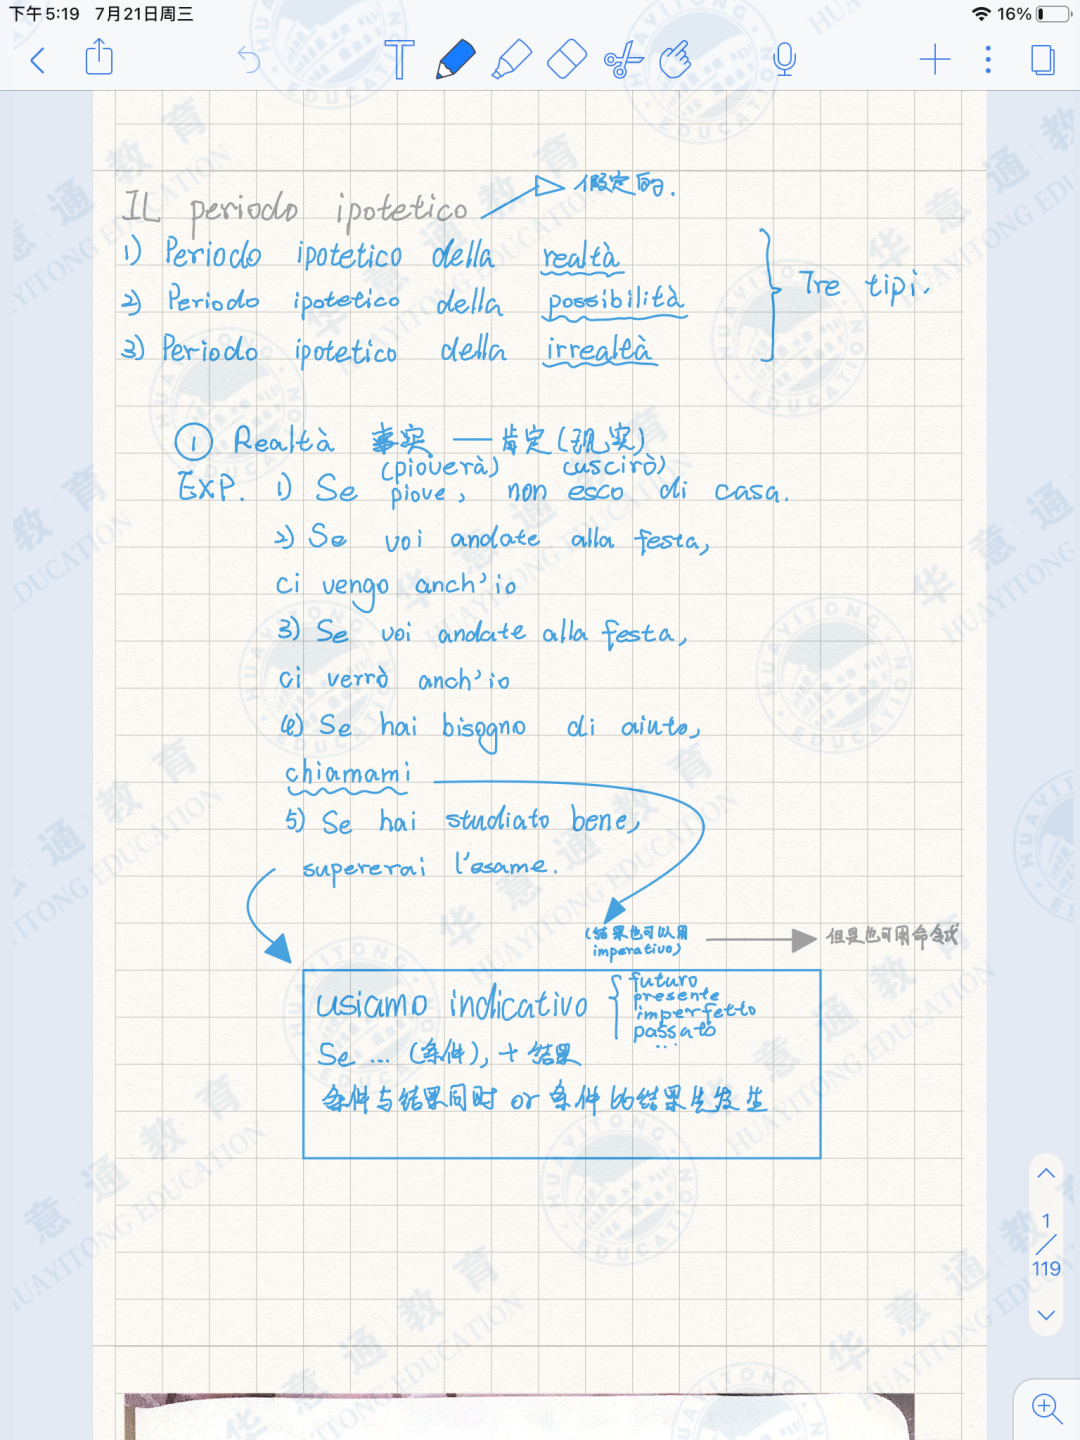 下午5:19 7月21日周三
16%
IL periodo ipotetico
假定的.
1) Periodo ipotetico della realtà
2) Periodo ipotetico della possibilità
3) Periodo ipotetico della irrealtà
Tre tipi.
① Realtà 事实 — 肯定(现实)
(pioverà) (uscirò)
EXP. 1) Se piove, non esco di casa.
2) Se voi andate alla festa,
ci vengo anch'io
3) Se voi andate alla festa,
ci verrò anch'io
4) Se hai bisogno di aiuto,
chiamami
5) Se hai studiato bene,
supererai l'esame.
(结果也可以用
imperativo)
但是也可用命令式
usiamo indicativo
futuro
presente
imperfetto
passato
...
Se ... (条件), + 结果
条件与结果同时 or 条件比结果先发生
1
119
华意通教育
HUAYITONG EDUCATION